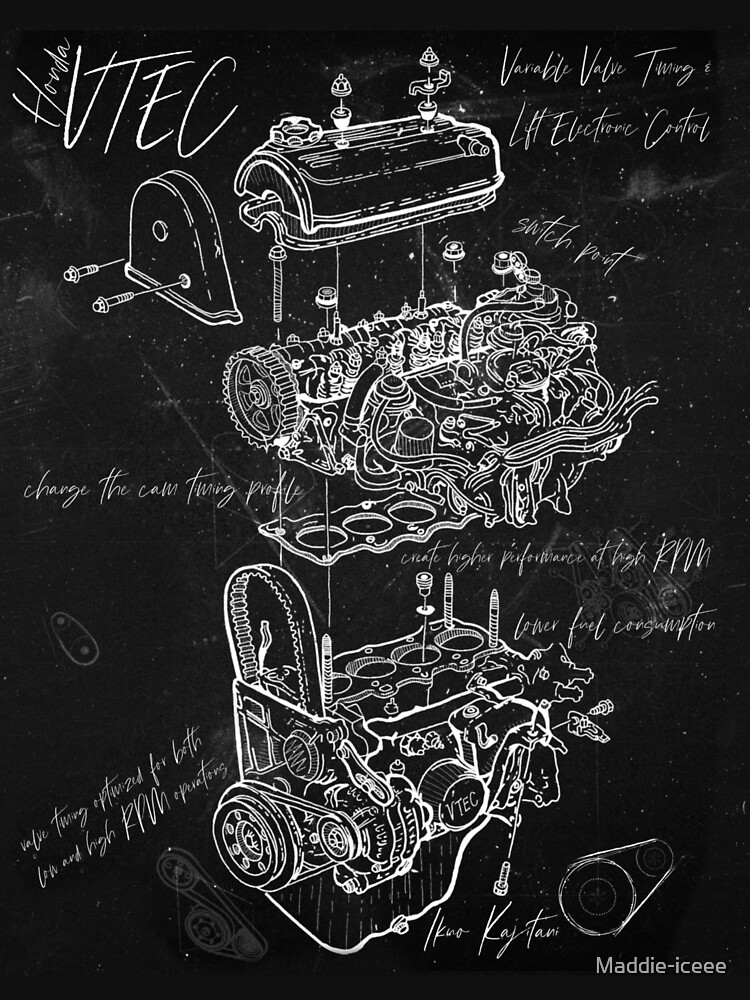 Honda
VTEC
Variable Valve Timing &
Lift Electronic Control
switch point
change the cam timing profile
create higher performance at high RPM
lower fuel consumption
valve timing optimized for both
low and high RPM operations
VTEC
Ikuo Kajitani
Maddie-iceee